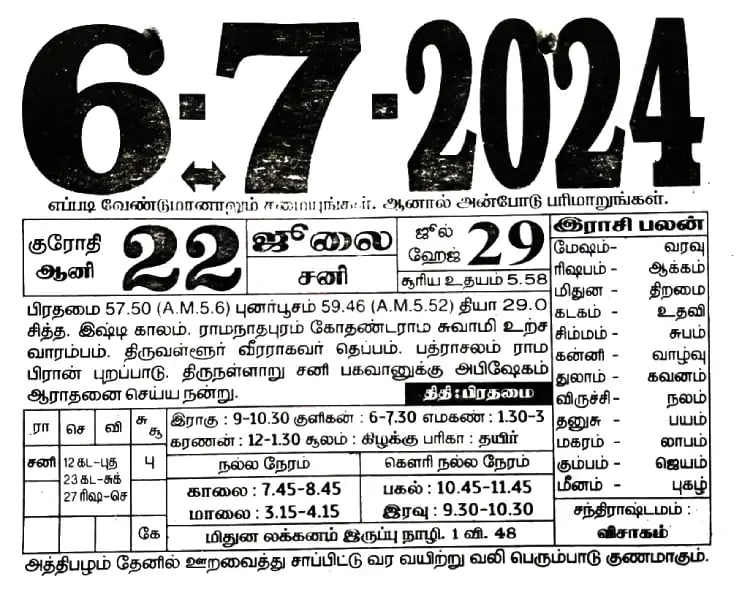 6-7-2024
எப்படி வேண்டுமானாலும் சமையுங்கள். ஆனால் அன்போடு பரிமாறுங்கள்.
குரோதி
ஆனி
22
ஜூலை
சனி
ஜூல்
ஹேஜ்
29
சூரிய உதயம் 5.58
பிரதமை 57.50 (A.M.5.6) புனர்பூசம் 59.46 (A.M.5.52) தியா 29.0
சித்த. இஷ்டி காலம். ராமநாதபுரம் கோதண்டராம சுவாமி உற்ச
வாரம்பம். திருவள்ளூர் வீரராகவர் தெப்பம். பத்ராசலம் ராம
பிரான் புறப்பாடு. திருநள்ளாறு சனி பகவானுக்கு அபிஷேகம்
ஆராதனை செய்ய நன்று.
திதி:பிரதமை
ரா செ வி சு சூ
சனி 12 கட-புத பு
23 கட-சுக்
27 ரிஷ-செ
கே
இராகு : 9-10.30 குளிகன் : 6-7.30 எமகண் : 1.30-3
கரணன் : 12-1.30 சூலம் : கிழக்கு பரிகா : தயிர்
நல்ல நேரம்
கௌரி நல்ல நேரம்
காலை : 7.45-8.45
பகல் : 10.45-11.45
மாலை : 3.15-4.15
இரவு : 9.30-10.30
மிதுன லக்கனம் இருப்பு நாழி. 1 வி. 48
இராசி பலன்
மேஷம்- வரவு
ரிஷபம்- ஆக்கம்
மிதுன - திறமை
கடகம் - உதவி
சிம்மம் - சுபம்
கன்னி - வாழ்வு
துலாம் - கவனம்
விருச்சி- நலம்
தனுசு - பயம்
மகரம் - லாபம்
கும்பம் - ஜெயம்
மீனம் - புகழ்
சந்திராஷ்டமம் :
விசாகம்
அத்திபழம் தேனில் ஊறவைத்து சாப்பிட்டு வர வயிற்று வலி பெரும்பாடு குணமாகும்.